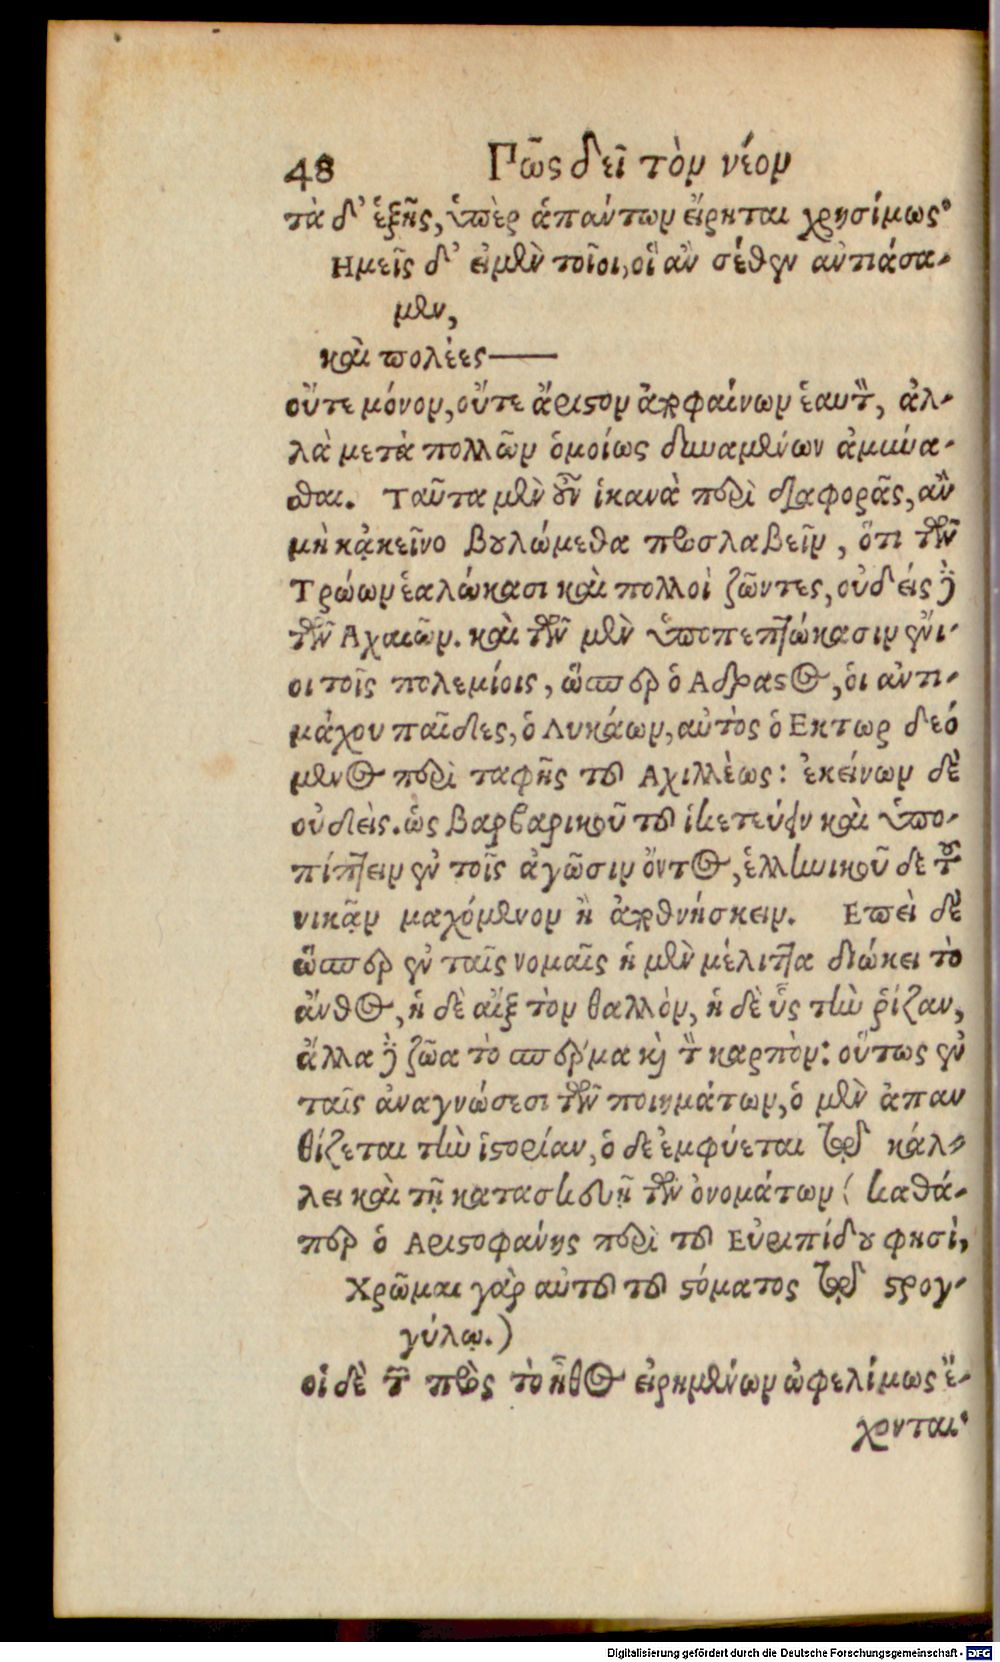 48 Πῶς δεῖ τὸν νέον
τὰ δ’ ἑξῆς, ὑπὲρ ἁπάντων εἴρηται χρησίμως·
Ημεῖς δ’ εἰμὲν τοῖοι, οἳ ἂν σέθεν αὐτιάσα-
μεν,
καὶ πολέες——
οὔτε μόνον, οὔτε ἄριστον ἀποφαίνων ἑαυτὸν, ἀλ-
λὰ μετὰ πολλῶν ὁμοίως δυναμένων ἀμύνα-
σθαι. Ταῦτα μὲν οὖν ἱκανὰ περὶ διαφορᾶς, ἂν
μὴ κᾀκεῖνο βουλώμεθα προσλαβεῖν, ὅτι τῶν
Τρώων ἑαλώκασι καὶ πολλοὶ ζῶντες, οὐδεὶς δὲ
τῶν Αχαιῶν. καὶ τῶν μὲν ὑποπεπτώκασιν ἔνι-
οι τοῖς πολεμίοις, ὥσπερ ὁ Αδραστος, ὁι ἀντι-
μάχου παῖδες, ὁ Λυκάων, αὐτὸς ὁ Εκτωρ δεό
μενος περὶ ταφῆς τοῦ Αχιλλέως: ἐκείνων δὲ
οὐδείς. ὡς βαρβαρικοῦ τοῦ ἱκετεύειν καὶ ὑπο-
πίπτειν ἐν τοῖς ἀγῶσιν ὄντος, ἑλληνικοῦ δὲ τοῦ
νικᾷν μαχόμενον ἢ ἀποθνήσκειν. Επεὶ δὲ
ὥσπερ ἐν ταῖς νομαῖς ἡ μὲν μέλιττα διώκει τὸ
ἄνθος, ἡ δὲ αἲξ τὸν θαλλὸν, ἡ δὲ ὗς τὴν ῥίζαν,
ἄλλα δὲ ζῶα τὸ σπέρμα καὶ τὸν καρπὸν: οὕτως ἐν
ταῖς ἀναγνώσεσι τῶν ποιημάτων, ὁ μὲν ἀπαν
θίζεται τὴν ἱστορίαν, ὁ δὲ ἐμφύεται τῷ κάλ-
λει καὶ τῇ κατασκευῇ τῶν ὀνομάτων (καθά-
περ ὁ Αριστοφάνης περὶ τοῦ Εὐριπίδου φησὶ,
Χρῶμαι γὰρ αὐτοῦ τοῦ στόματος τῷ στρογ-
γύλῳ.)
οἱ δὲ τῶν πρὸς τὸ ἦθος εἰρημένων ὠφελίμως ἔ-
χονται·
Digitalisierung gefördert durch die Deutsche Forschungsgemeinschaft - DFG